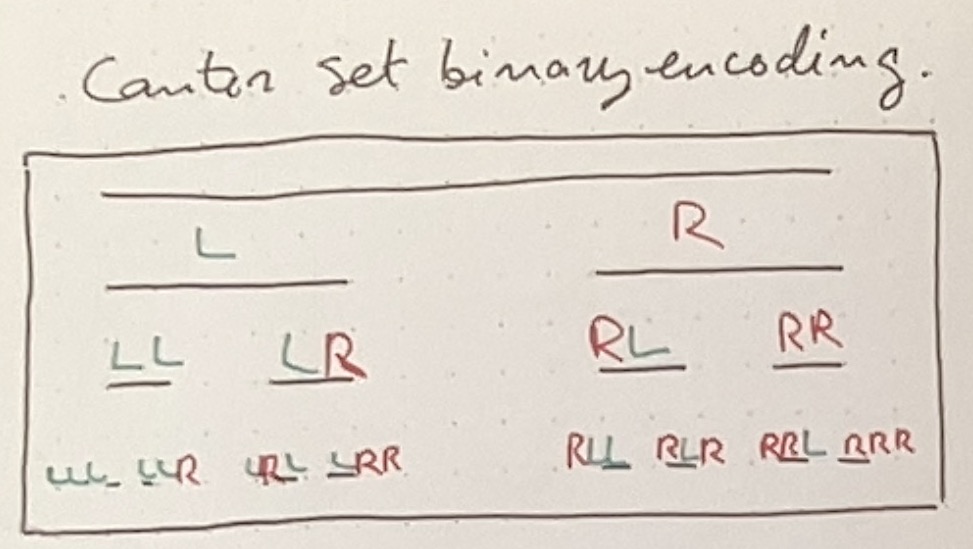 Cantor set binary encoding.
L R
LL LR RL RR
LLL LLR LRL LRR RLL RLR RRL RRR